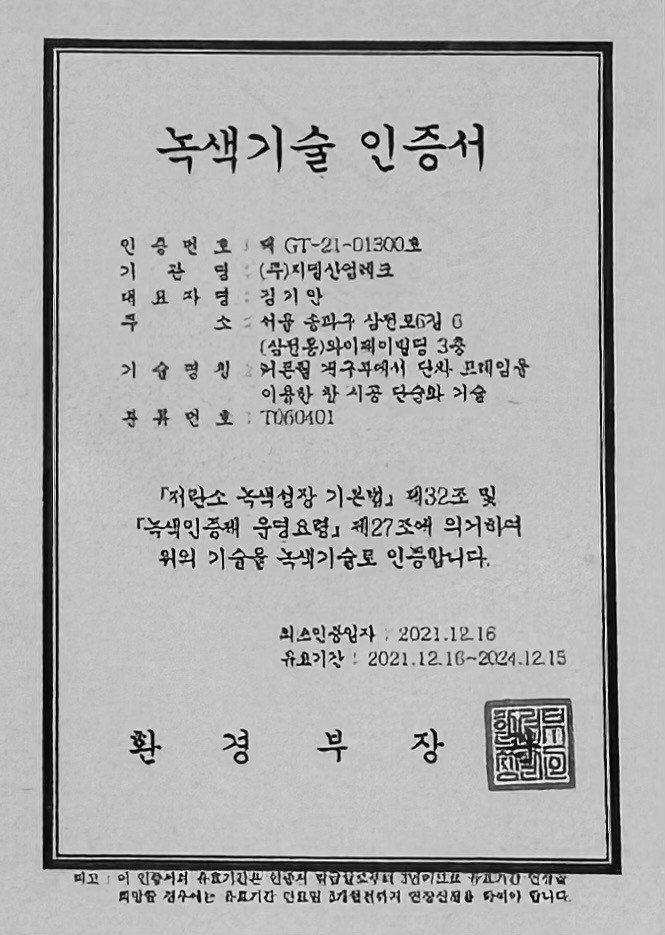 녹색기술 인증서
인증번호 : 제 GT-21-01300호
기관명 : (주)지엠산업테크
대표자명 : 김기만
주소 : 서울 송파구 삼전로6길 6
(삼전동)와이제이빌딩 3층
기술명칭 : 커튼월 개구부에서 단위 프레임을
이용한 창 시공 단순화 기술
분류번호 : T060401
「저탄소 녹색성장 기본법」 제32조 및
「녹색인증제 운영요령」 제27조에 의거하여
위의 기술을 녹색기술로 인증합니다.
최초인증일자 : 2021.12.16
유효기간 : 2021.12.16~2024.12.15
환경부장
비고 : 이 인증서의 유효기간은 인증서 발급일로부터 3년이므로 유효기간
경우에는 유효기간 만료일 3개월전까지 연장신청을 하여야 합니다.